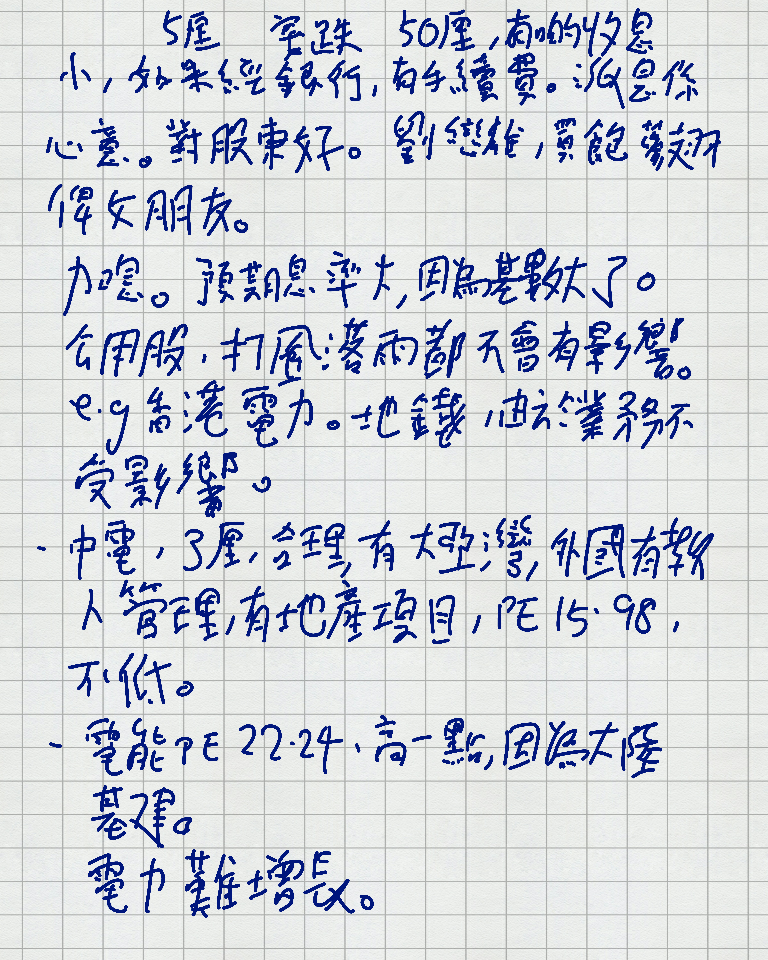 5厘 穿跌 50厘,有啲收息
小,如果經銀行,有手續費。派息係
心意。對股東好。劉戀雄,買飽麥翅
俾女朋友。
加息。預期息率大,因為基數大了。
公用股,打風落雨都不會有影響。
e.g 香港電力。地鐵,由於業務不
受影響。
- 中電,3厘,合理,有大亞灣,外國有救
人管理,有地產項目,PE 15.98,
不低。
- 電能PE 22.24、高一點,因為大陸
基建。
電力難增長。